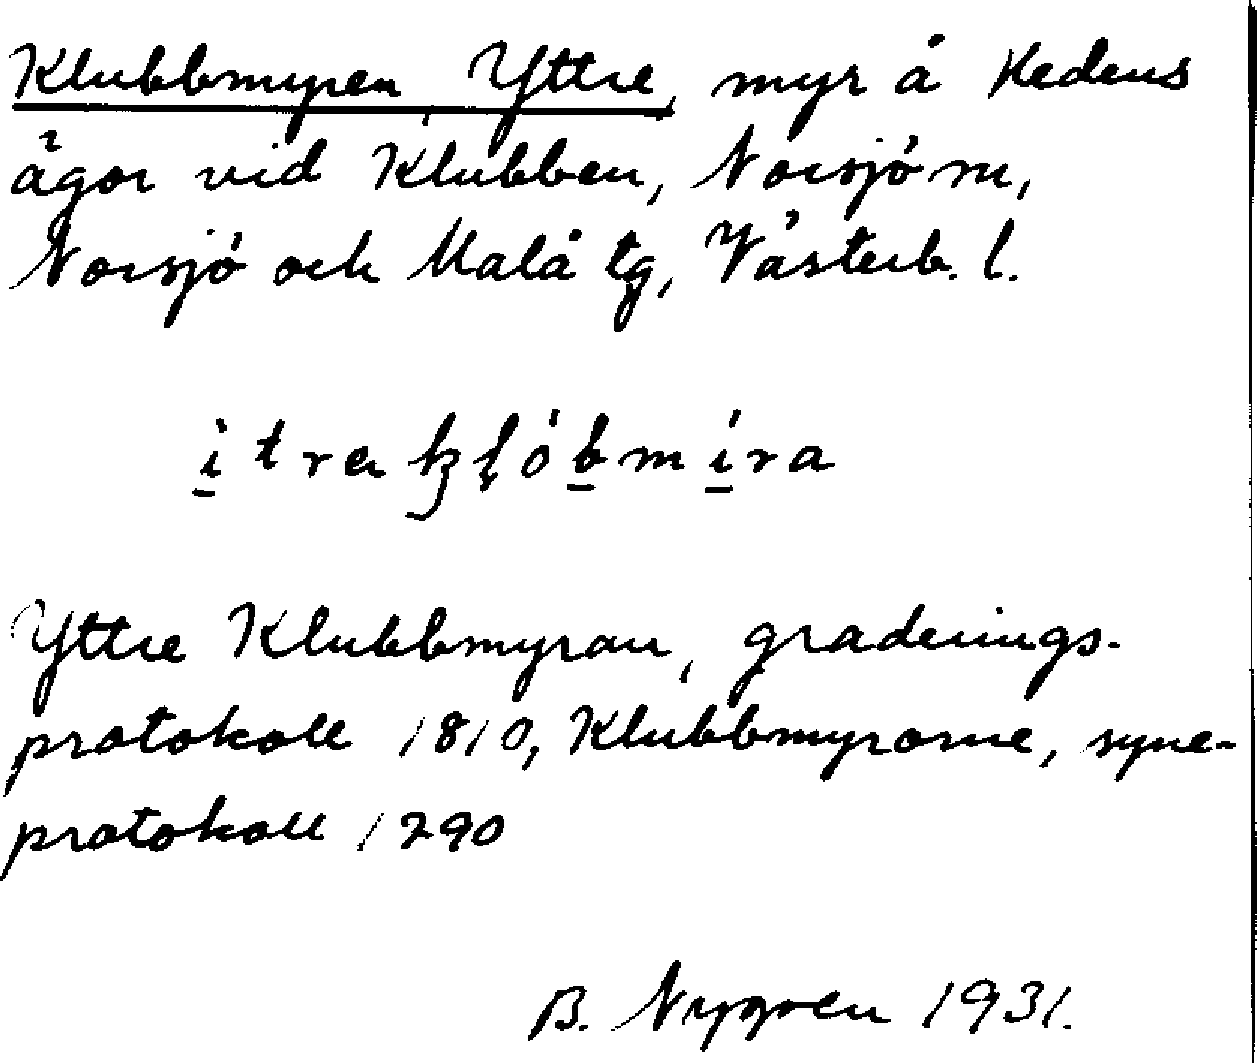 Klubbmyren, Yttre, myr å Kedens
ägor vid Klubben, Norsjö sn,
Norsjö och Malå tg, Västerb. l.
i̠trɐ kļób̠mí̠ra
Yttre Klubbmyran, graderings-
protokoll 1810, Klubbmyrorne, syne-
protokoll 1790
B. Nygren 1931.